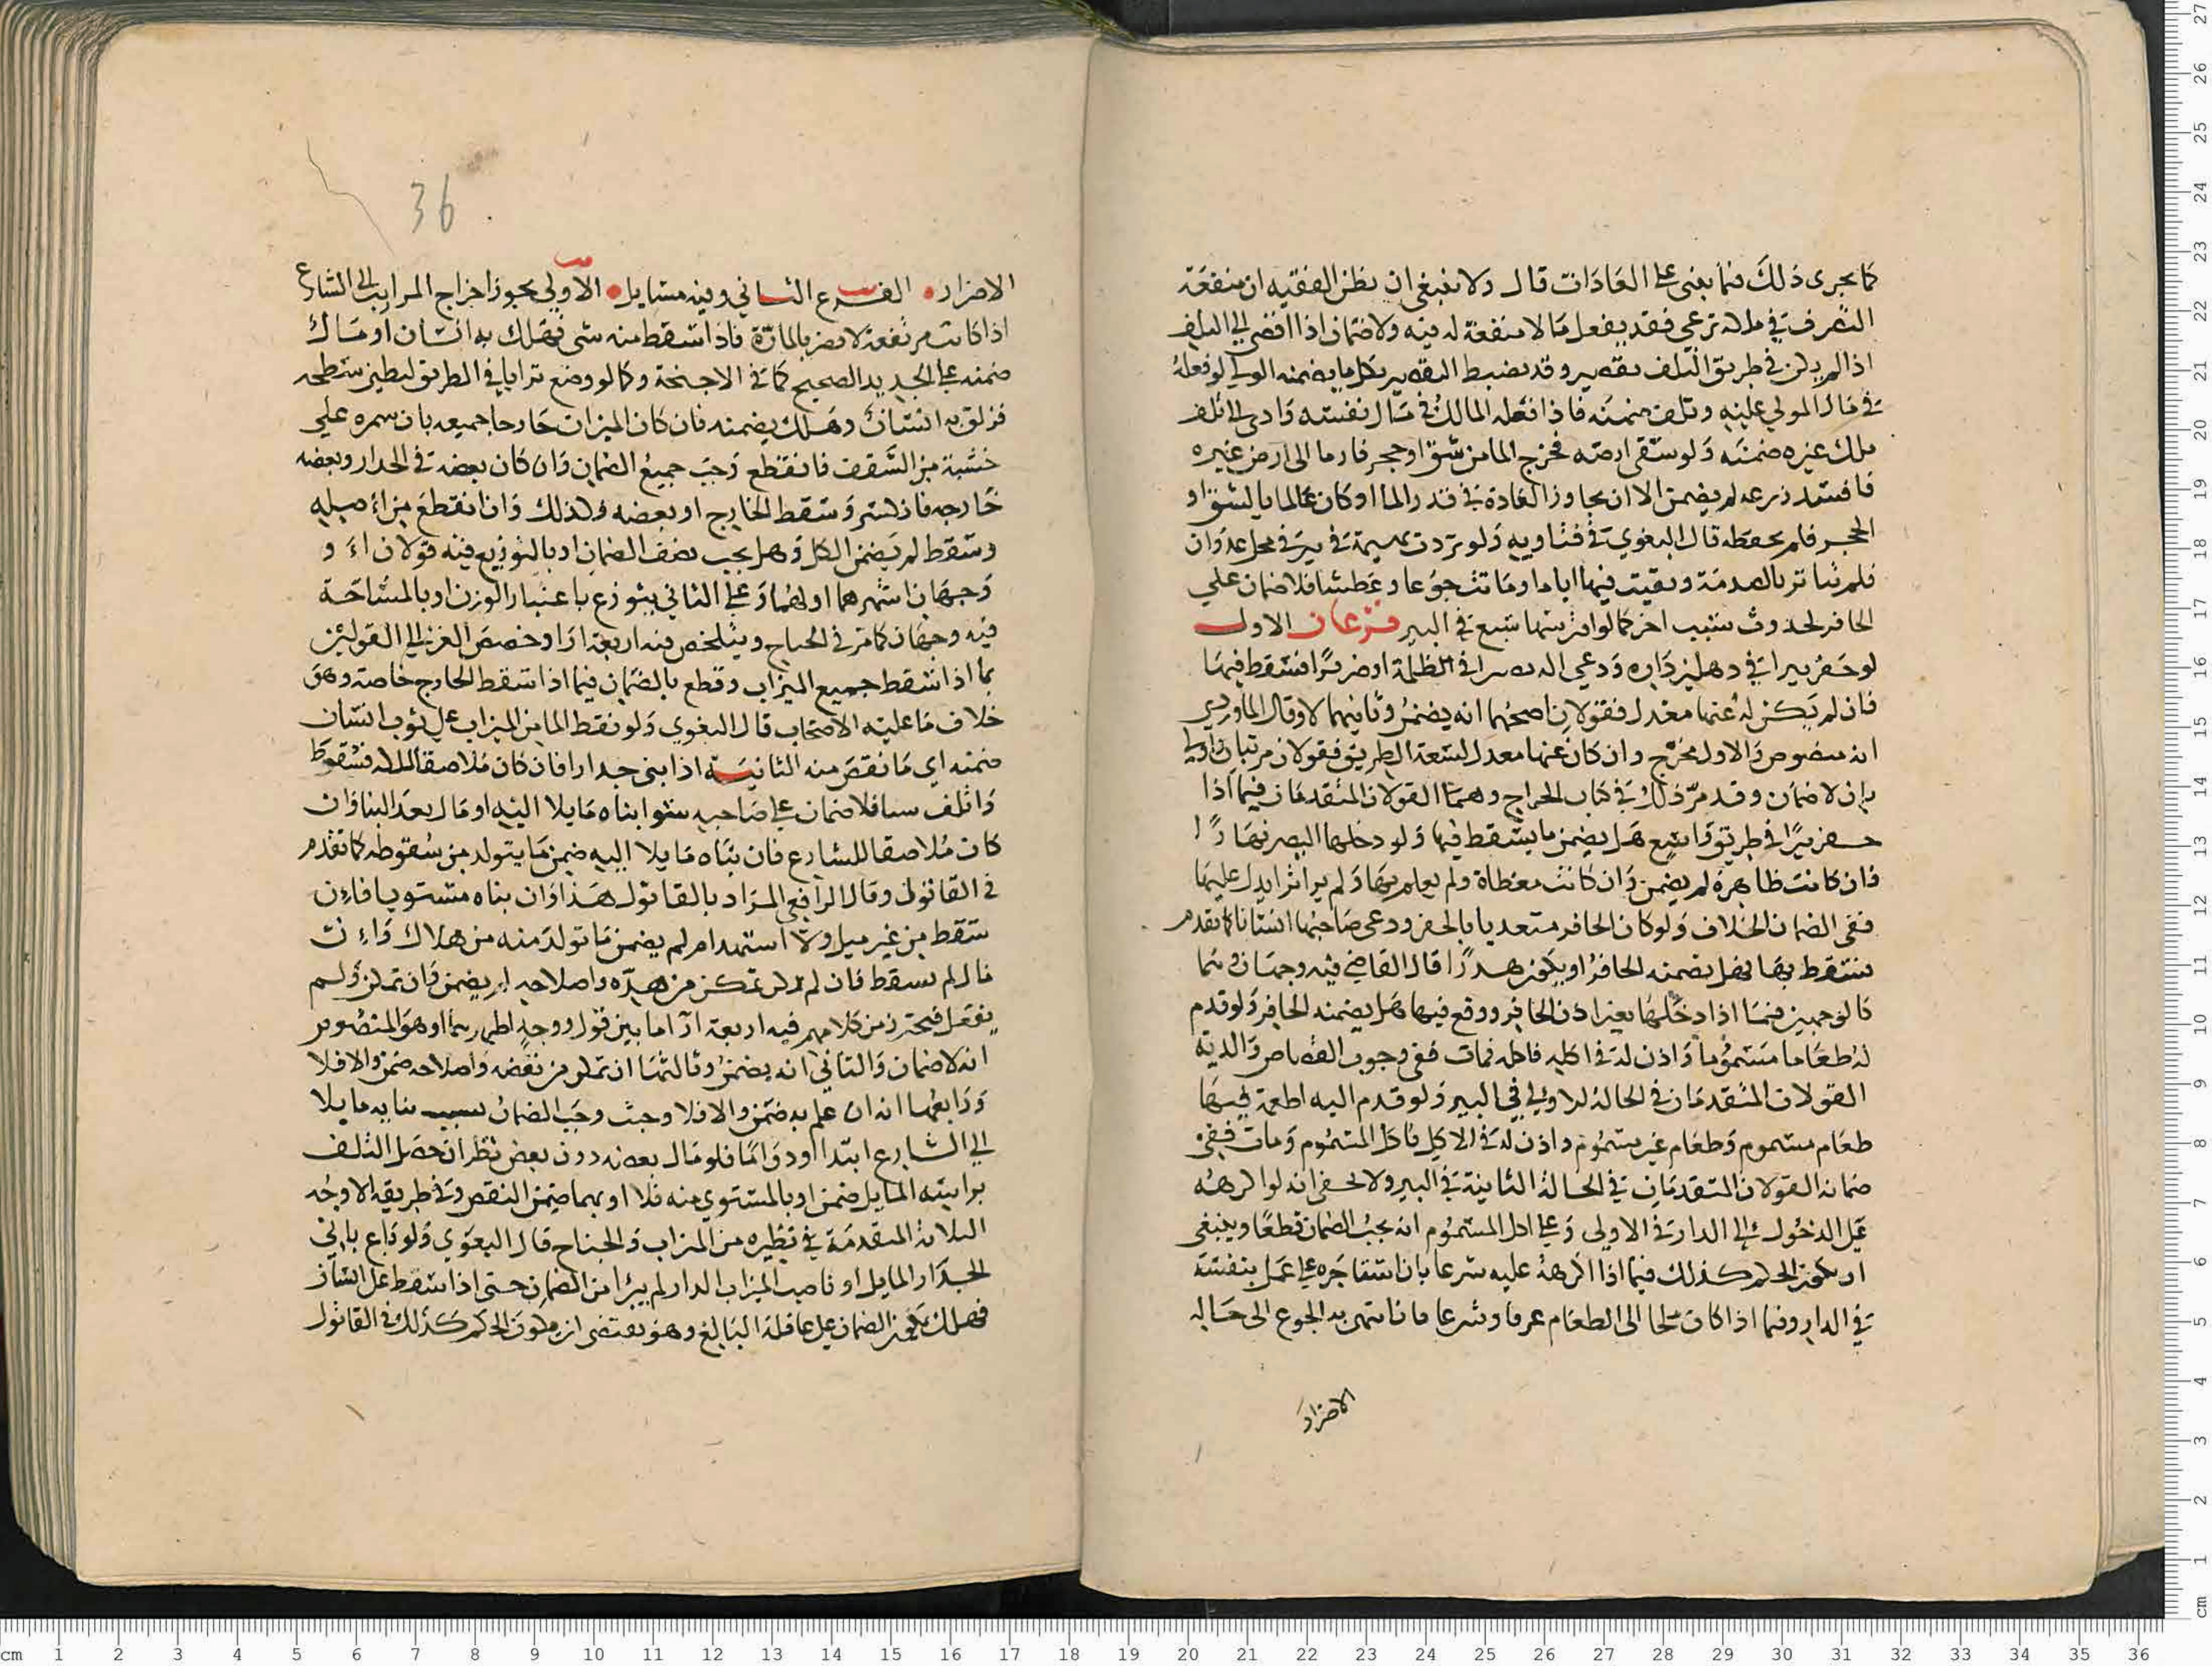 كما يجرى ذلك فيما يفنى على العادات قال ولا ينبغي ان يظن الفقيه ان منفعة
التصرف في ملاه ترعي فقد يفعل ما لا منفعة له فيه ولا ضمان اذا افضى الى التلف
اذا لم يكن في طريق التلف تقصير وقد يضبط التقصير بكل ما يضمنه الولي لو فعله
في مال المولي عليه وتلف ضمنه فاذا فعله المالك في مال نفسه وادى الى تلف
ملك غيره ضمنه ولو سقى ارضه فخرج الما من شق او حجر فار ما الى ارض غيره
فافسد زرعه لم يضمن الا ان يجاوز العادة في قدر الما او كان عالما بالشق او
الحجر فلم يحفظه قال البغوي في فتاويه ولو تردت بهيمة في بير في محل عدوان
فلم تتاثر بالصدمة وبقيت فيها اياما وماتت جوعا وعطشا فلا ضمان علي
الحافر لحدوث سبب اخر كما لو افترسها سبع في البير فرعان الاول
لو حفر بيرا في دهليز داره ودعي اليه بصيرا في الظلمة او ضريرا فسقط فيها
فان لم يكن له عنها معدل فقولان اصحهما انه يضمن وثانيهما لا وقال الماوردي
انه منصوص والاول مخرج وان كان عنها معدل لسعة الطريق فقولان مرتبان واولى
بان لا ضمان وقد مر ذلك في كتاب الجراح وهما القولان المتقدمان فيما اذا
حفر بيرا في طريق واسع هل يضمن ما يسقط فيها ولو دخلها البصير نهارا
فان كانت ظاهرة لم يضمن وان كانت مغطاة ولم يعلم بها ولم ير اثرا يدل عليها
ففي الضمان الخلاف ولو كان الحافر متعديا بالحفر ودعى صاحبها انسانا كما تقدم
فسقط بها فهل يضمنه الحافر او يكون هدرا قال القاضي فيه وجهان وهما
كالوجهين فيما اذا دخلها بغير اذن الحافر ووقع فيها هل يضمنه الحافر ولو قدم
له طعاما مسموما واذن له في اكله فاكله فمات ففي وجوب القصاص والدية
القولان المتقدمان في الحالة الاولي في البير ولو قدم اليه اطعمة فيها
طعام مسموم وطعام غير مسموم واذن له في الاكل فاكل المسموم ومات ففي
ضمانه القولان المتقدمان في الحالة الثانية في البير ولا يخفى انه لو اكرهه
على الدخول الى الدار في الاولى وعلى اكل المسموم انه يجب الضمان قطعا وينبغي
ان يكون الحكم كذلك فيما اذا اكرهه عليه شرعا بان استاجره على عمل بنفسه
في الدار وفيما اذا كان ملجا الى الطعام عرفا وشرعا فانتهى به الجوع الى حاله
الاضرار
36
الاضرار الفرع الثاني وفيه مسايل الاولي يجوز اخراج الميرايب الى الشارع
اذا كانت مرتفعة لا تضر بالمارة فاذا سقط منه شى فهلك به انسان او مال
ضمنه على الجديد الصحيح كما في الاجنحة وكما لو وضع ترابا في الطريق لتطيين سطحه
فزلق به انسان وهلك يضمنه فان كان الميزاب خارجا جميعه بان سمره علي
خشبة من السقف فانقطع وجب جميع الضمان وان كان بعضه في الجدار وبعضه
خارجه فانكسر وسقط الخارج او بعضه فكذلك وان انقطع من اصله
وسقط لم يضمن الكل وهل يجب نصف الضمان او بالتوزيع فيه قولان او
وجهان اشهرهما اولهما وعلى الثاني يتوزع باعتبار الوزن او بالمساحة
فيه وجهان كما مر في الجناح ويتلخص فيه اربعة ارا وخصص الغزالي القولين
بما اذا سقط جميع الميزاب وقطع بالضمان فيما اذا سقط الخارج خاصة وهو
خلاف ما عليه الاصحاب قال البغوي ولو نقط الما من الميزاب على ثوب انسان
ضمنه اي ما نقص منه الثانية اذا بنى جدارا فان كان ملاصقا لملاه فسقوط
واتلف سيا فلا ضمان على صاحبه سوا بناه مايلا اليه او مال بعد البنا وان
كان ملاصقا للشارع فان بناه مايلا اليه ضمن ما يتولد من سقوطه كما تقدم
في القانول وقال الرافعي المراد بالقانول هذا وان بناه مستويا فان
سقط من غير ميل ولا استهدام لم يضمن ما تولد منه من هلاك وان
مال ثم سقط فان لم يكن تمكن من هده واصلاحه لم يضمن وان تمكن ولم
يفعل فيجتمع من كلامهم فيه اربعة آرا ما بين قول ووجه اظهرهما وهو المنصوص
انه لا ضمان والثاني انه يضمن وثالثها ان تمكن من نقضه واصلاحه ضمن والا فلا
ورابعها انه ان علم به ضمن والا فلا وحيث وجب الضمان بسبب بنايه مايلا
الي الشارع ابتدا او دواما فلو مال بعضه دون بعض نظر ان حصل التلف
براسه المايل ضمن او بالمستوي منه فلا او بهما ضمن النقص وفي طريقه الاوجه
الثلاثة المتقدمة في نظيره من الميزاب والجناح قال البغوي ولو باع باني
الجدار المايل او ناصب الميزاب الدار لم يبرا من الضمان حتى اذا سقط على انسان
فهلك يكون الضمان على عاقلة البايع وهو يقتضى ان يكون الحكم كذلك في القانول